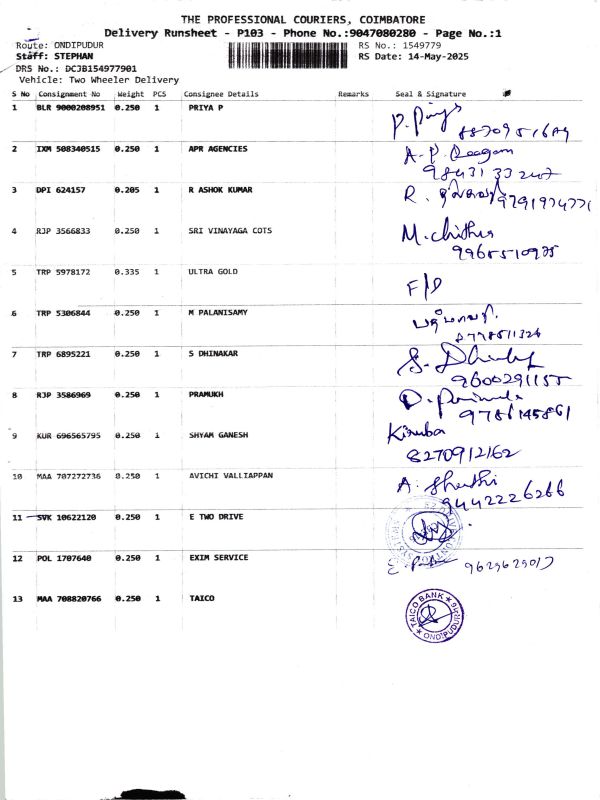 THE PROFESSIONAL COURIERS, COIMBATORE
Delivery Runsheet - P103 - Phone No.:9047080280 - Page No.:1
Route: ONDIPUDUR RS No.: 1549779
Staff: STEPHAN RS Date: 14-May-2025
DRS No.: DCJB154977901
Vehicle: Two Wheeler Delivery
S No Consignment No Weight PCS Consignee Details Remarks Seal & Signature
1 BLR 9000208951 0.250 1 PRIYA P
2 IXM 508340515 0.250 1 APR AGENCIES A. P.
3 DPI 624157 0.205 1 R ASHOK KUMAR R.
4 RJP 3566833 0.250 1 SRI VINAYAGA COTS M. Chithra
9965510975
5 TRP 5978172 0.335 1 ULTRA GOLD F/D
6 TRP 5306844 0.250 1 M PALANISAMY
8778511326
7 TRP 6895221 0.250 1 S DHINAKAR
9600291155
8 RJP 3586969 0.250 1 PRAMUKH
9786145861
9 KUR 696565795 0.250 1 SHYAM GANESH Kiruba
8270912162
10 MAA 707272736 0.250 1 AVICHI VALLIAPPAN A.
9442226266
11 SVK 10622120 0.250 1 E TWO DRIVE
12 POL 1707640 0.250 1 EXIM SERVICE
13 MAA 708820766 0.250 1 TAICO TAICO BANK ONDIPUDUR